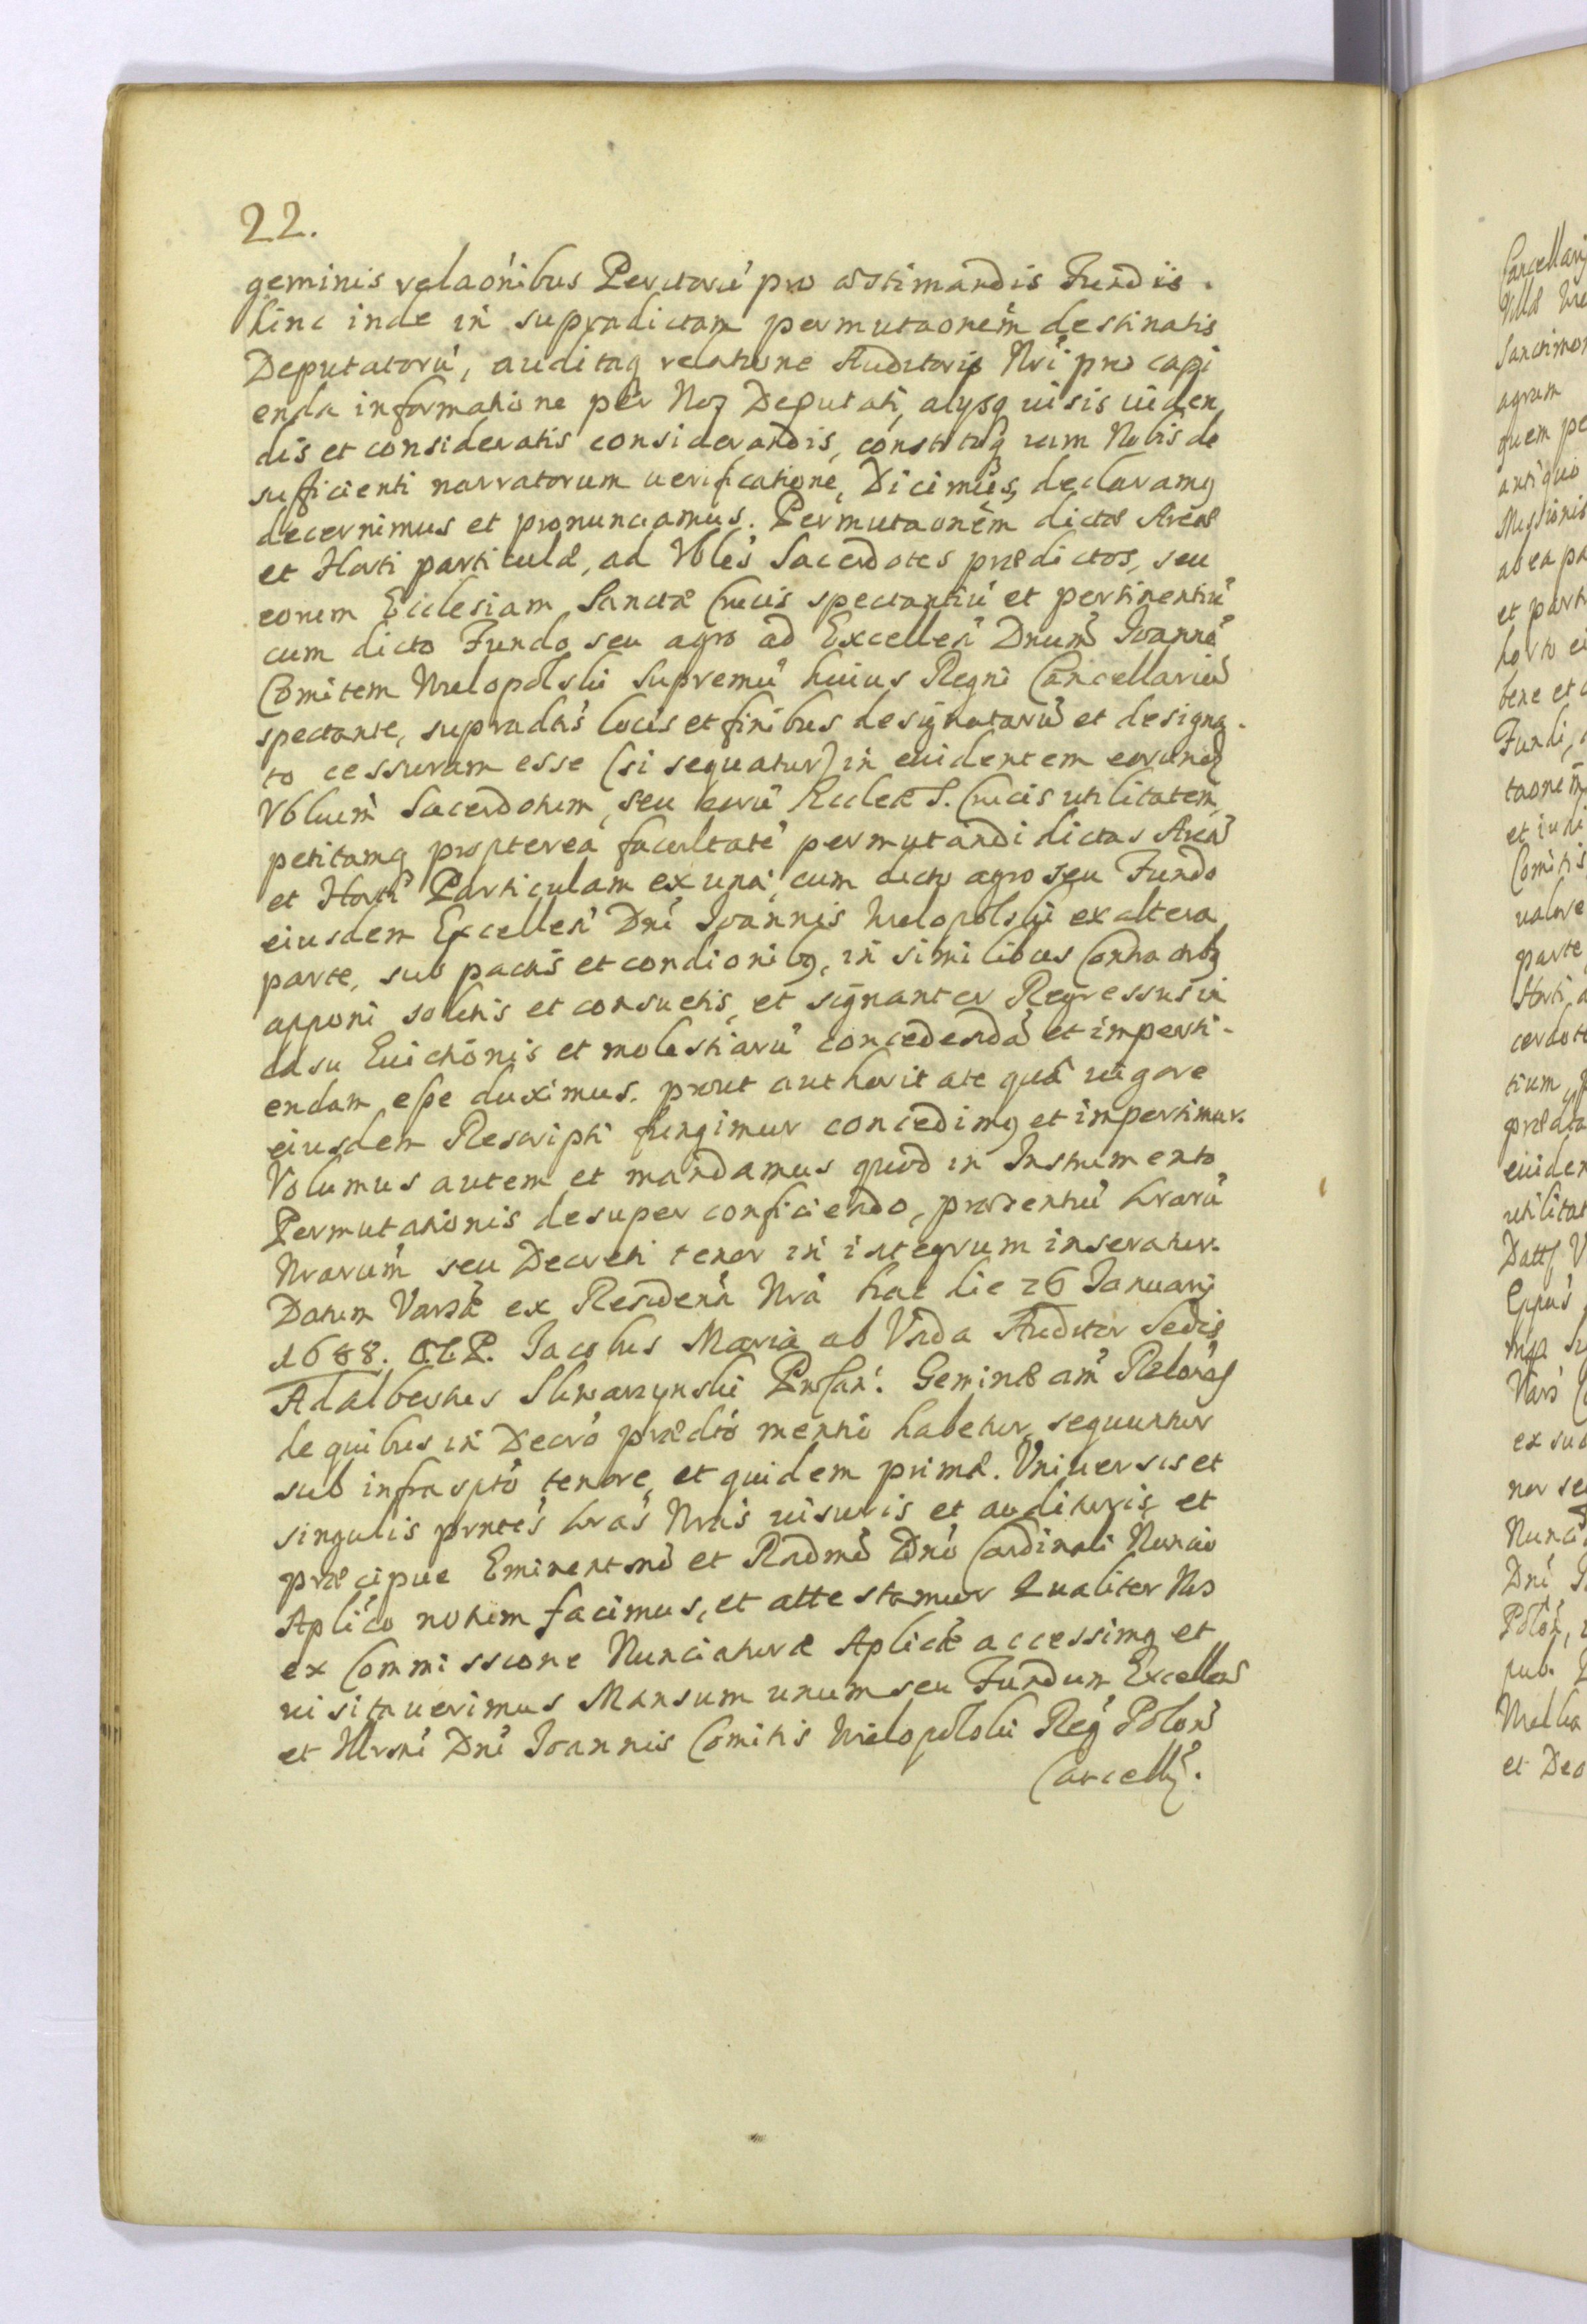 22.
geminis relaónibus Peritorú pro æstimandis Fundis.
hinc inde in supradictam permutaonem destinatis
Deputatorú, auditaq relatione Auditoris Nri pro capi
enda informatione per Nos Deputati, alysq uisis uiden
dis et consideratis considerandis, constitoq cum Nobis de
sufficienti narratorum uerificatione, Dicimus, declaramq
decernimus et pronunciamus. Permutaonem dictæ Areæ
et Horti particulæ, ad Vbles Sacerdotes prædictos, seu
eorum Ecclesiam Sanctæ Crucis spectantiú et pertinentiú
cum dicto Fundo seu agro ad Excellen Dnum Joanné
Comitem Wielopolski Supremú huius Regni Cancellariú
spectante, supradtis locis et finibus designatarú et designa-
to cessuram esse (si sequatur) in euidentem eorund
Vblium Sacerdotum, seu eorú Eccleæ S. Crucis utilitatem,
petitamq propterea facultaté permutandi dictas Areá
et Horti Particulam ex una, cum dicto agro seu Fundo
eiusdem Excellen Dni Joannis Wielopolski ex altera
parte, sub pactis et condionibq, in similibus Contractibq
apponi solitis et consuetis, et signanter Regressus in
casu Euictionis et molestiarú concedendá et imperti-
endam esse duximus. prout authoritate quâ uigore
eiusdem Rescripti fungimur concedimq et impertimur.
Volumus autem et mandamus quod in Instrumento
Permutationis desuper conficiendo, præsentiú lrarú
Nrarum seu Decreti tenor in integrum inseratur.
Datum Varsæ ex Residena Nrâ hac die 26 Januarij
1688. Jacobus Maria ab Vnda Auditor Sedis
Adalbertus Skwarzynski Geminæ am Relaones
de quibus in Decro prædto mentio habetur, sequuntur
sub infrascpto tenore, et quidem primæ. Vniuersis et
singulis prntes lras Nras uisuris et audituris et
præcipue Eminentmo et Rndmo Dno Cardinali Nuncio
Aplico notum facimus, et attestamur Qualiter Nos
ex Commissione Nunciaturæ Aplicæ accessimq et
uisitauerimus Mansum unum seu Fundum Excellen
et Illrmi Dni Joannis Comitis Wielopolski Reg Polon
Cancell.
Cancellarij
Sanctimon
agrum
quem pe
antiquo
Missionis
ab ea pa
et parti
horto ei
bene et
Fundi,
taonem
et iudi
Comitis
ualore
parte
Horti a
cerdote
tium
prædta
euiden
utilitat
Datt V
ex sua
nor se
Nunci
Dni J
Polon,
pub.
et Deo